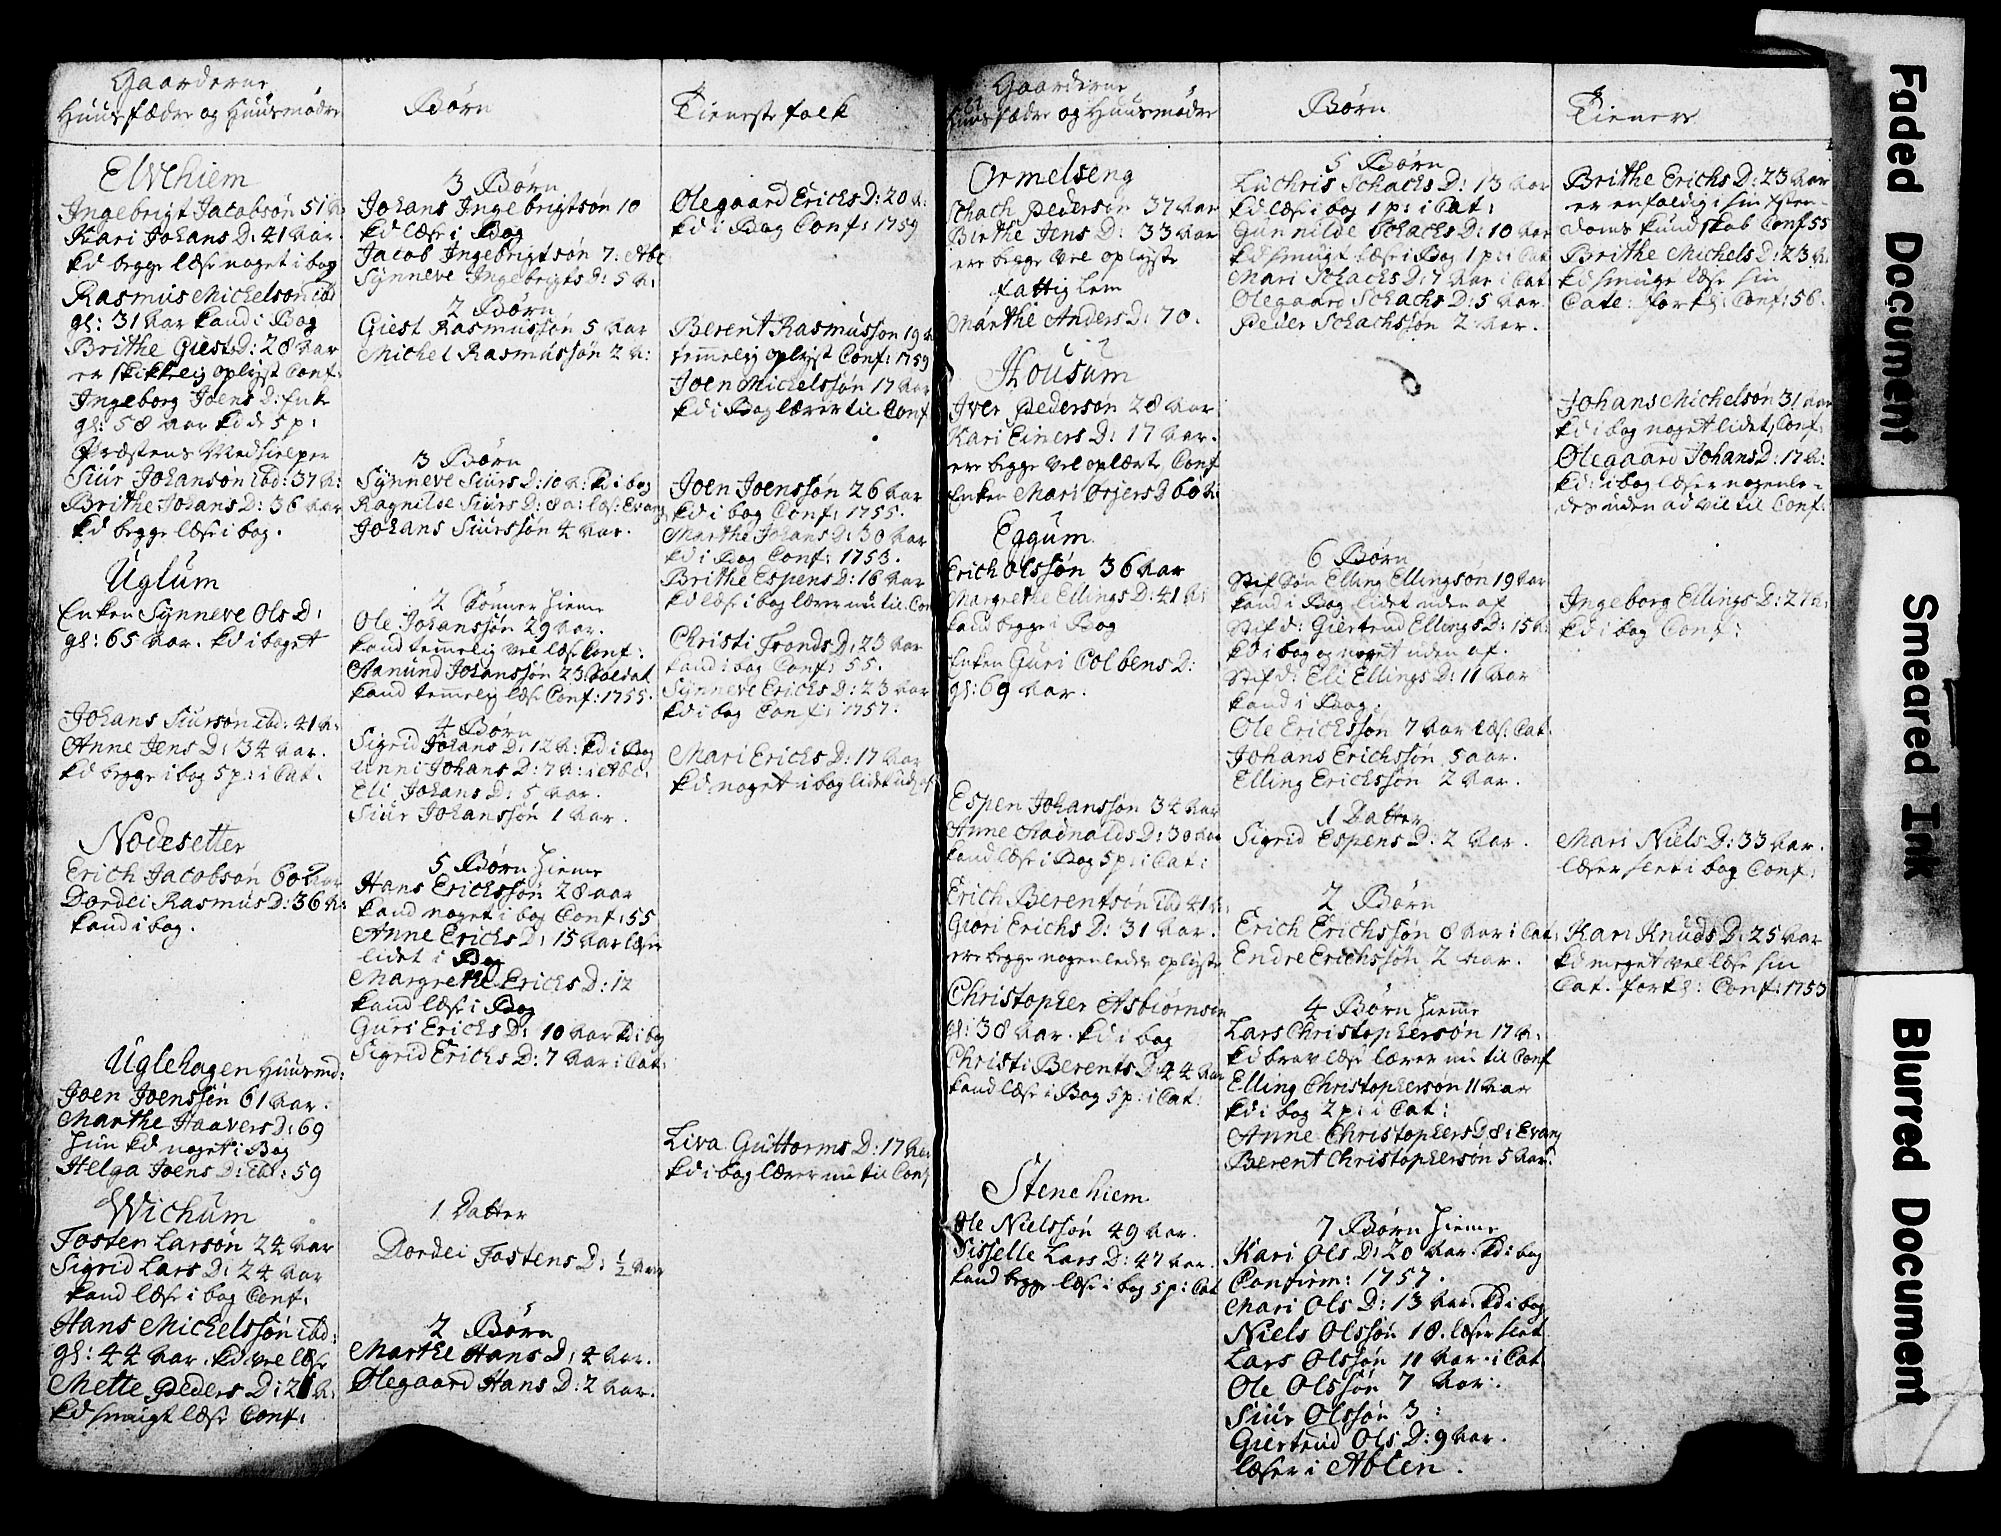 Gaarderne
Huusfædre og Huusmødre
Elvehiem
Ingebrigt Jacobsøn 51 A:
Kari Johans D: 41 Aar.
kd begge læse noget i bog
Rasmus Michelsøn ibd
gl: 31 Aar kand i Bog
Brithe Giests D: 28 Aar
er skikkelig oplyst Conf:
Ingeborg Joens D: Enke
gl: 58 Aar kd de 5 p:
Præstens Medhielper
Siur Johansøn ibd: 37 A:
Brithe Johans D: 36 Aar
kd begge læse i bog.
Uglum
Enken Synneve Ols D:
gl: 65 Aar. kd i boget
Johans Siursøn ibd: 41 A:
Anne Jens D: 34 Aar.
kd begge i bog 5 p: i Cat.
Nodesetter
Erich Jacobsøn 60 Aar
Dordei Rasmus D: 36 A:
kand i bog.
Uglehagen Huusmd:
Joen Joenssøn 61 Aar.
Marthe Haavers D: 69
hun kd noget i Bog
Helga Joens D: ibd: 59
Wichum
Tosten Larsøn 24 Aar
Sigrid Lars D: 24 Aar
kand læse i bog Conf:
Hans Michelssøn ibd:
gl: 44 Aar. kd vel læse
Mette Peders D: A:
kd smugt læse Conf:
Børn
3 Børn
Johans Ingebrigtsøn 10
kd læse i Bog
Jacob Ingebrigtsøn 7. Abc
Synneve Ingebrigts D: 5 A:
2 Børn
Giest Rasmussøn 5 Aar
Michel Rasmussøn 2 A:
3 Børn
Synneve Siurs D: 10 A: kd i bog
Ragnilde Siurs D: 8 a: læs: Evang
Johans Siurssøn 4 Aar.
2 Sønner hieme
Ole Johanssøn 29 Aar.
kand temelig vel læse Conf:
Aamund Johanssøn 23 Soldat
kand temelig læse Conf: 1755.
4 Børn
Sigrid Johans D: 12 A: kd i Bog
Unni Johans D: 7 A: i Abc.
Eli Johans D: 5 Aar.
Siur Johanssøn 1 Aar.
5 Børn hieme
Hans Erichssøn 28 aar
kand noget i bog Conf: 55
Anne Erichs D: 15 Aar læser
lidet i Bog
Margrethe Erichs D: 12
kand læse i Bog
Guri Erichs D: 10 Aar kd i bog
Sigrid Erichs D: 7 Aar i Cat:
1 Datter
Dordei Tostens D: ½ Aar
2 Børn
Marthe Hans D: 4 Aar.
Olegaard Hans D: 2 Aar.
Tienestefolk
Olegaard Erichs D: 20 A:
kd i Bog Conf: 1759
Berent Rasmussøn 19 A
temelig oplyst Conf: 1759
Joen Michelssøn 17 Aar
kd i Bog lærer til Conf
Joen Joenssøn 26 Aar
kd i bog Conf: 1755.
Marthe Johans D: 30 Aar
kd i Bog Conf: 1753.
Brithe Espens D: 16 Aar
kd læse i bog lærer nu til Con
Christi Tronds D: 23 Aar
kand i bog Conf: 55.
Synneve Erichs D: 23 Aar
kd i bog Conf: 1757.
Mari Erichs D: 17 Aar
kd noget i bog lidet ud af
Liva Guttorms D: 17 Aar
kd i bog lærer nu til Conf
Gaarderne
Huusfædre og Huusmødre
Ormelseng
Schach Pedersøn 37 Aar
Birthe Jens D: 33 Aar
ere begge vel oplyste
fattig Lem
Marthe Anders D: 70.
Housum
Iver Pedersøn 28 Aar
Kari Einers D: 17 Aar.
ere begge vel oplærte Conf
Enken Mari Orjers D 60 A:
Eggum
Erich Olssøn 36 Aar
Margrethe Ellings D: 41 A:
kand begge i Bog
Enken Guri Colbens D:
gl: 69 Aar.
Espen Johanssøn 34 Aar
Anne D: 30 Aar
kand læse i Bog 5 p: i Cat:
Erich Berentsøn ibd 41 A:
Giøri Erichs D: 31 Aar.
ere begge nogenledes oplyste
Christopher Asbiørnsen
gl: 38 Aar. kd i bog
Christi Berents D: 44 Aar
kand læse i Bog 5 p: i Cat:
Stenehiem
Ole Nielssøn 49 Aar.
Sisselle Lars D: 47 Aar.
kand begge læse i bog 5 p: Cat
Børn
5 Børn
Luchris Schachs D: 13 Aar
kd læse i bog 1 p: i Cat:
Gunnilde Schachs D: 10 Aar
kd smugt læse i Bog 1 p: i Cat
Mari Schachs D: 7 Aar i Cat
Olegaard Schachs D: 5 Aar
Peder Schachssøn 2 Aar.
6 Børn
Stif Søn Elling Ellingsøn 19 Aar
kand i Bog lidet uden af
Stif d: Giertrud Ellings D: 15 A:
kd i bog og noget uden af.
Stif d: Eli Ellings D: 11 Aar
kand i Bog:
Ole Erichssøn 7 Aar læs: Cat.
Johans Erichssøn 5 aar.
Elling Erichssøn 2 Aar.
1 Datter
Sigrid Espens D: 2 Aar.
2 Børn
Erich Erichssøn 8 Aar i Cat:
Endre Erichssøn 2 Aar.
4 Børn hieme
Lars Christophersøn 17 A:
kd brav læse lærer nu til Conf
Elling Christophersøn 11 Aar
kd i bog 2 p: i Cat:
Anne Christophers D 8: Evang
Berent Christophersøn 5 Aar.
7 Børn hieme
Kari Ols D: 20 Aar. kd i bog
Confirm: 1757.
Mari Ols D: 13 Aar. kd i bog
Niels Olssøn 18. læser slet
Lars Olssøn 11 Aar i Cat
Ole Olssøn 7 Aar.
Siur Olssøn 3:
Giertrud Ols D: 9 Aar.
læser i Abcen.
Tienere
Brithe Erichs D: 23 Aar
er enfoldig i sin Xsten-
doms kundskab Conf 55
Brithe Michels D: 23 A:
kd smugt læse sin
Cate: forkl: Conf: 56.
Johans Michelsøn 31 Aar
kd i bog noget lidet, Conf:
Olegaard Johans D: 17 A:
kd: i bog læser nogenle-
des uden ad vil til Conf:
Ingeborg Ellings D: 27 A:
kd i bog Conf:
Mari Niels D: 33 Aar.
læser slet i bog Conf:
Kari Knuds D: 25 Aar
kd meget vel læse sin
Cat. forkl: Conf: 1753
Faded Document
Smeared Ink
Blurred Document